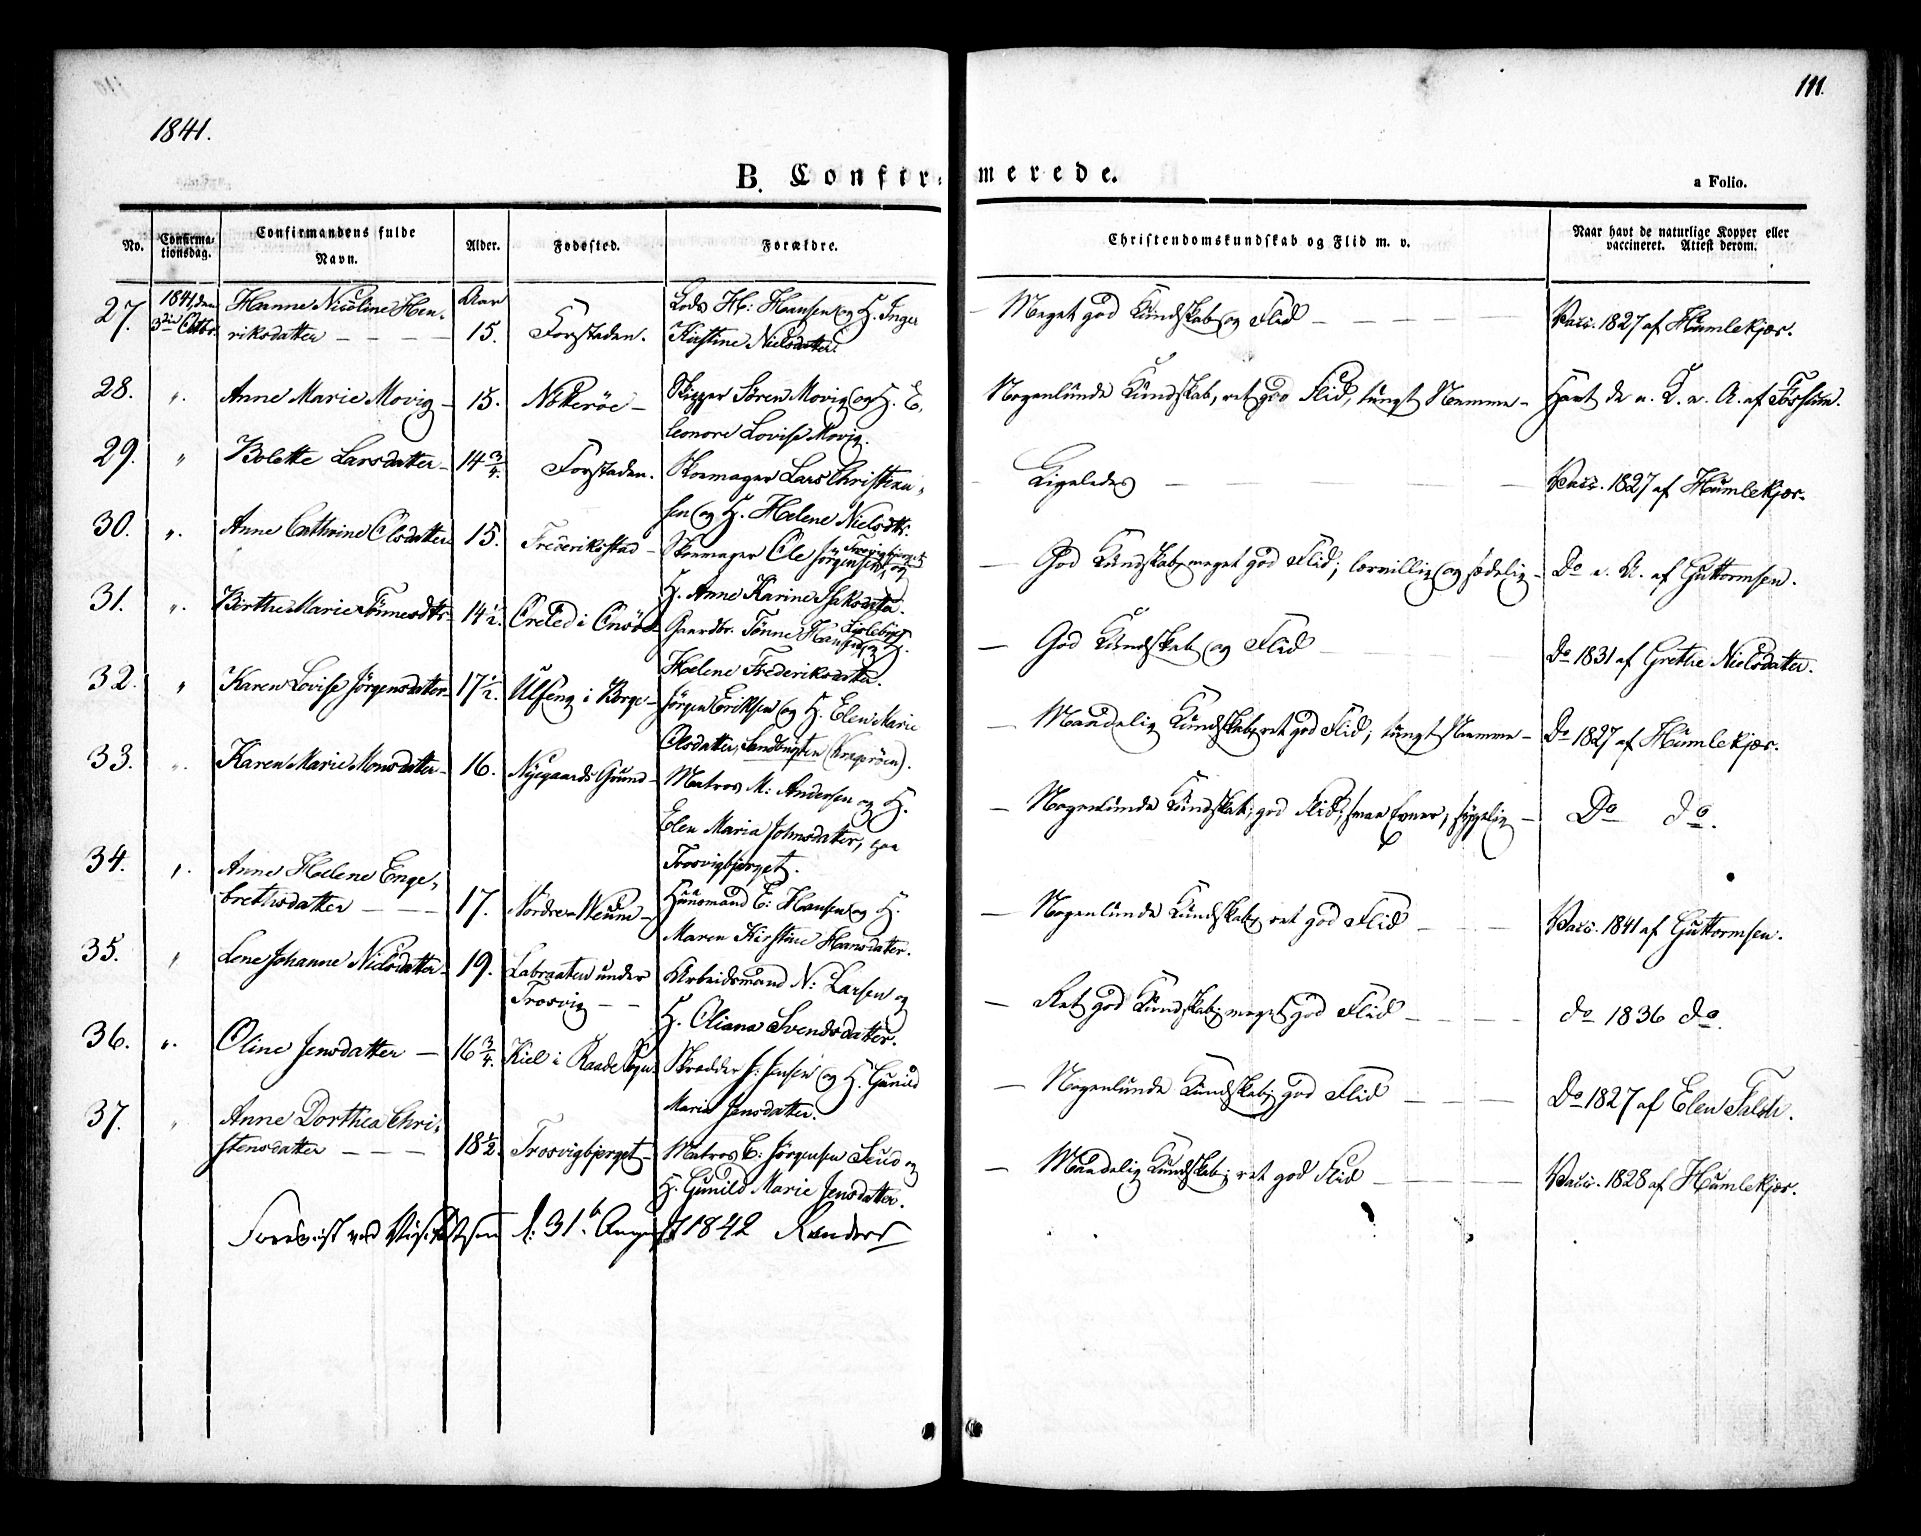 111.
1841.
B. Confirmerede.
a Folio.
No.
Confirmationsdag.
Confirmandens fulde Navn.
Alder.
Fødested.
Forældre.
Christendomskundskab og Flid m. v.
Naar havt de naturlige Kopper eller vaccineret. Attest derom.
27. 1841, den 3die Octbr. Hanne Nicoline Hen-
riksdatter — — — Aar 15. Forstaden. Lods H: Hansen og H. Inger
Kirstine Nielsdatter. Meget god Kundskab og Flid — — — — Vacc. 1827 af Humlekjær.
28. " Anne Marie Movig — 15. Nøkerøe — Skipper Søren Movig og H. E.
leonore Lovise Movig. Nogenlunde Kundskab, ret god Flid, tungt Nemme — Havt de n. K. e. A. af Fossum.
29. " Bolette Larsdatter — 14 3/4. Forstaden. Skomager Lars Christian-
sen og H. Helene Nielsdtr. Ligeledes — — — — Vacc. 1827 af Humlekjær.
30. " Anne Cathrine Olsdatter 15. Frederiksstad — Skomager Ole Jørgensen, Trosvigbjerget og
H. Anne Karine Isaksdatter. — God Kundskab, meget god Flid; lærvillig og sædelig — Do e. A. af Guttormsen.
31. " Birthe Marie Tønnesdtr 14 1/2. Ørebed i Onsøe Gaardbr. Tønne Hansen og H.
Helene Frederiksdatter. — God Kundskab og Flid — — — Do 1831 af Grethe Nielsdatter.
32. " Karen Lovise Jørgensdatter 17 1/2. Ulfeng i Borge — Jørgen Eriksen og H. Elen Marie
Olsdatter, Sandbugten (Krageröen). — Maadelig Kundskab, ret god Flid; tungt Nemme — Do 1827 af Humlekjær.
33. " Karen Marie Monsdatter — 16. Nyegaards Grund — Matros M: Andersen og H.
Elen Maria Johnsdatter, paa
Trosvigbjerget. — Nogenlunde Kundskab; god Flid; smaa Evner; sygelig — Do do.
34. " Anne Helene Enge-
brethsdatter — — 17. Nordre Weum — Huusmand E: Hansen og H.
Maren Kirstine Hansdatter. — Nogenlunde Kundskab, ret god Flid — — — Vacc. 1841 af Guttormsen.
35. " Lene Johanne Nielsdatter — 19. Labraaten under
Trosvig — — Arbeidsmand N: Larsen og
H. Oliana Svendsdatter. — Ret god Kundskab; meget god Flid — — — do 1836 do.
36. " Oline Jensdatter — 16 3/4. Kiel i Raade Sogn Skrædder J: Jensen og H. Gunild
Maria Jensdatter. — Nogenlunde Kundskab; god Flid — — — Do 1827 af Elen Falch.
37. " Anne Dorthea Chri-
stensdatter — — — 18 1/2. Trosvigbjerget — Matros C: Jørgensen Lund og
H. Gunild Marie Jensdatter. — Maadelig Kundskab; ret god Flid — — — Vacc. 1828 af Humlekjær.
Foreviist ved Visitatsen d: 31te August 1842